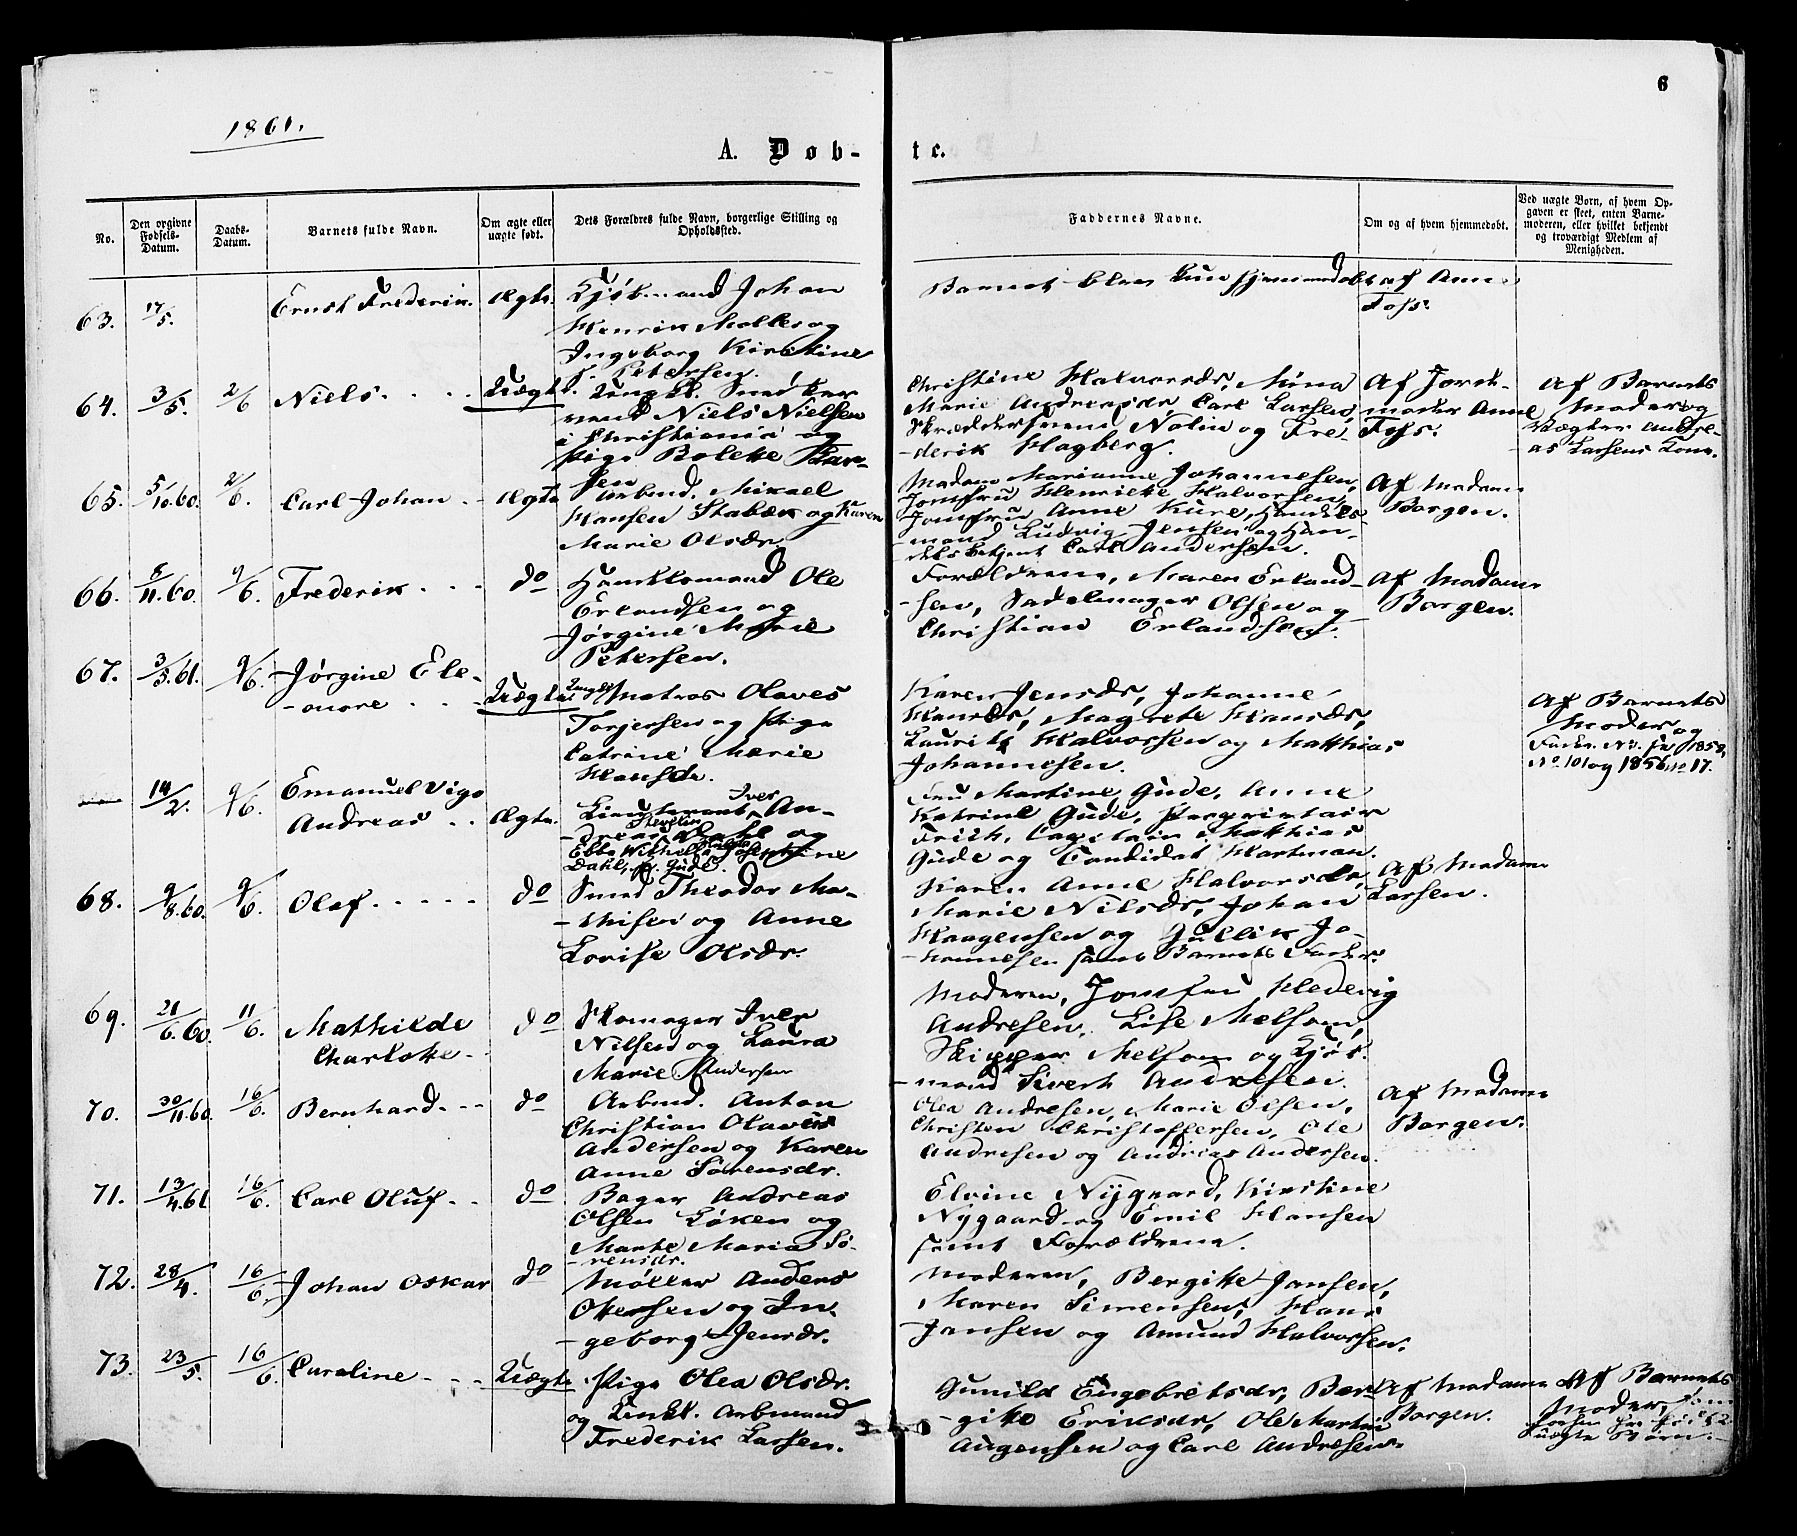 6
1861.
A. Døb-
te.
No.
Den opgivne
Fødsels-
Datum.
Daabs-
Datum.
Barnets fulde Navn.
Om ægte eller
uægte født.
Dets Forældres fulde Navn, borgerlige Stilling og
Opholdssted.
Faddernes Navne.
Om og af hvem hjemmedøbt.
Ved uægte Børn, af hvem Op-
gaven er skeet, enten Barne-
moderen, eller hvilket bekjendt
og troværdigt Medlem af
Menigheden.
63. 17/5. Ernst Frederik. Ægte. Kjøbmand Johan
Henrik Møller og
Ingeborg Kirstine
f. Petersen.
Barnet blev kun hjemmedøbt af Anne
Foss.
64. 3/5. 2/6 Niels. Uægte. Ungk. Snedker
svend Niels Nielsen
i Christiania og
Pige Bolette Lar-
sen
Christine Halvorsdr, Mina
Marie Andreasdr, Carl Larsen,
Skræddersvend Nolin og Fre-
-derik Hagberg.
Af Jord-
moder Anne
Foss.
Af Barnets
Moder og
Vægter Andre-
as Larsens Kone.
65. 5/10.60. 2/6. Carl Johan Ægte Arbmd. Mikael
Hansen Stabæk og Karen
Marie Olsdr
Madam Marianne Johannesen,
Jomfru Henriette Halvorsen,
Jomfru Anne Kure, Handels-
-mand Ludvig Jensen og Han-
delsbetjent Carl Andersen.
Af Madam
Borgen.
66. 8/11.60. 9/6. Frederik do Handelsmand Ole
Erlandsen og
Jørgine Marie
Petersen.
Forældrene, Maren Erland-
-sen, Sadelmager Olsen og
Christian Erlandsen.
Af Madam
Borgen.
67. 3/5.61. 9/6. Jørgine Ele-
-onore Uægte Ungk. Matros Olaves
Torjersen og Pige
Catrine Marie
Hansdr.
Karen Jensdr, Johanne
Hansdr, Magrete Hansdr,
Laurits Halvorsen og Matthias
Johannesen.
Af Barnets
Moder og
Fader. No. fra 1859,
No 101 og 1856 No 17.
14/2. 9/6. Emanuel Vigo
Andreas Ægte. Lieutenant Iver An-
-dreas Dahl og
Dahl, f. Gude.
Fru Martine Gude, Anne
Katrine Gude, Proprietair
Frich, Capitain Matthias
Gude og Candidat Hartman.
68. 9/8.60. 9/6. Olaf do Smed Theodor Ma-
-thisen og Anne
Lovise Olsdr.
Karen Anne Halvorsdr,
Marie Nilsdr, Johan
Haagensen og Gullik Jo-
-hannesen samt Barnets Fader.
Af Madam
Larsen.
69. 21/6.60. 11/6. Mathilde
Charlotte do Skomager Iver
Nilsen og Laura
Marie Andersen
Moderen, Jomfru Hedevig
Andresen, Lise Melsom,
Skipper Melsom og Kjøb-
-mand Sivert Andresen.
70. 30/11.60. 16/6. Bernhard. do Arbmd. Anton
Christian Olaves
Andersen og Karen
Anne Sørensdr.
Olea Andresen, Marie Olsen,
Christen Christoffersen, Ole
Andresen og Andreas Andersen.
Af Madam
Borgen.
71. 13/4.61 16/6. Carl Oluf do Bager Andreas
Olsen Løken og
Marte Maria Sø-
-rensdr.
Elvine Nygaard, Kirstine
Nygaard og Emil Hansen
samt Forældrene.
72. 28/4. 16/6. Johan Oskar do Møller Anders
Ottersen og In-
-geborg Jensdr.
Moderen, Bergitte Jansen,
Maren Simensen, Hans
Jansen og Amund Halvorsen.
73. 23/5. 16/6. Caroline Uægte Pige Olea Olsdr.
og Unkl. Arbmand
Frederik Larsen.
Gunild Engebretsdr, Ber-
-gitte Eriksdr, Ole Martin
Augensen og Carl Andresen.
Af Madam
Borgen.
Af Barnets
Moder, som
uægte Børn.